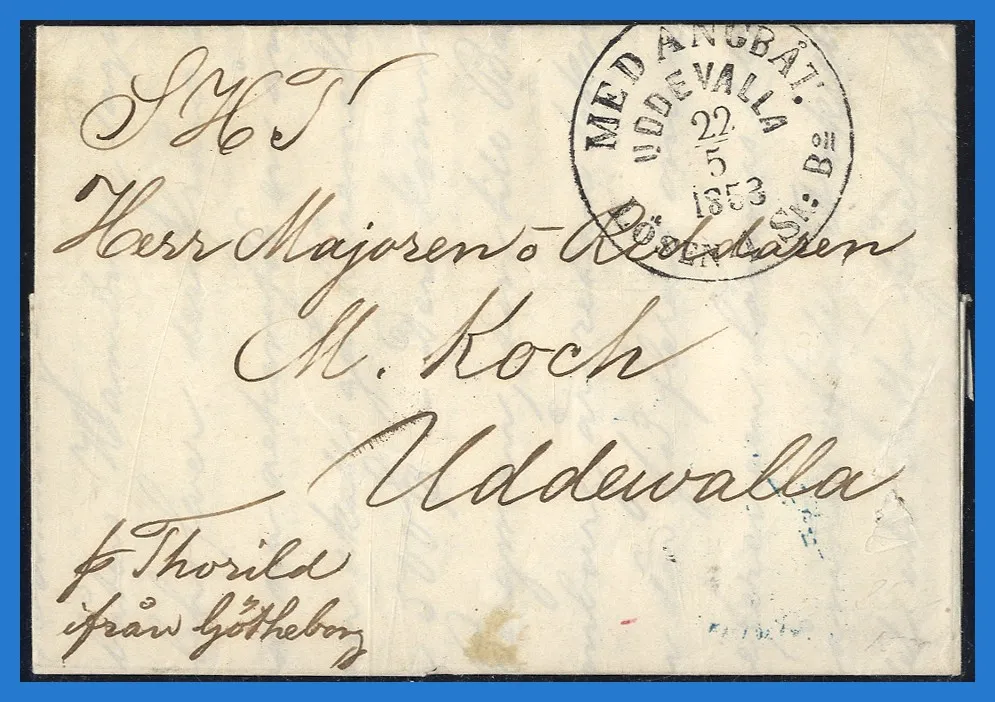 S H T
MED ANGBÅT.
UDDEVALLA
22
5
1853
LÖSEN 4 Sk: B<sup>o</sup>
Herr Majoren o Riddaren
M. Koch
Uddewalla
p Thorild
ifrån Götheborg